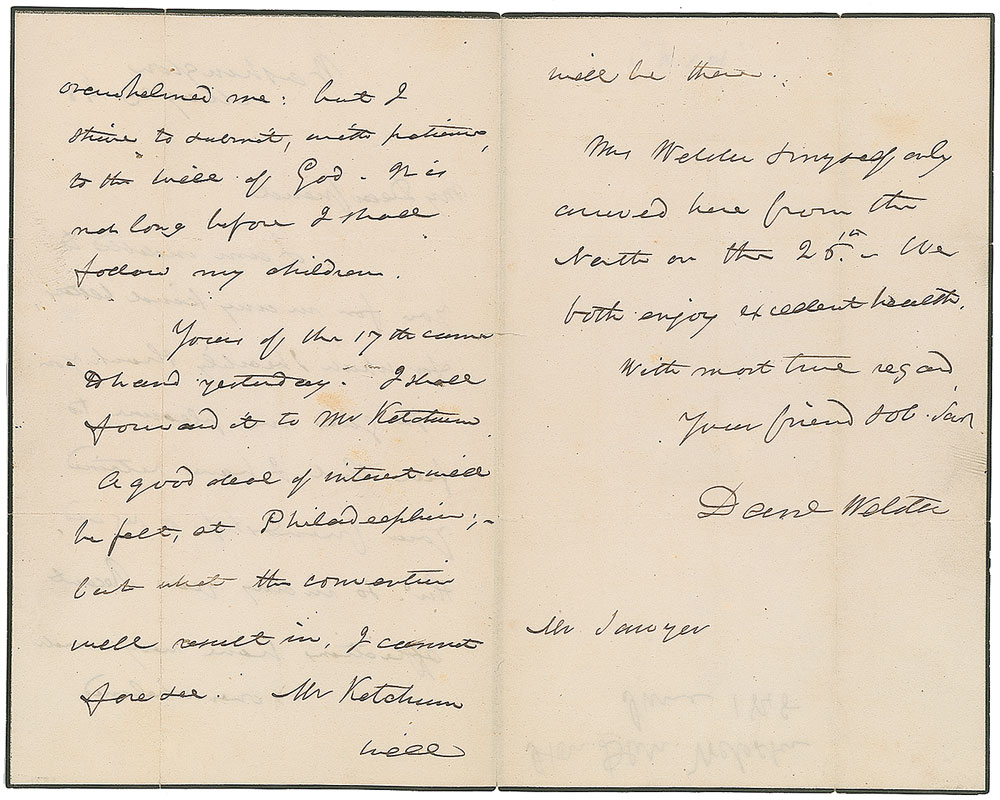 overwhelmed me: but I
strive to submit, with patience,
to the will of God - It is
not long before I shall
follow my children.
Yours of the 17th came
to hand yesterday. - I shall
forward it to Mr Ketchum
A good deal of interest will
be felt, at Philadelphia; -
but what the convention
will result in, I cannot
foresee. Mr Ketchum
will
will be there.
Mrs Webster & myself only
arrived here from the
North on the 25th. - We
both enjoy excellent health.
With most true regard,
Your friend & ob. Sert
Danl Webster
Mr Sawyer